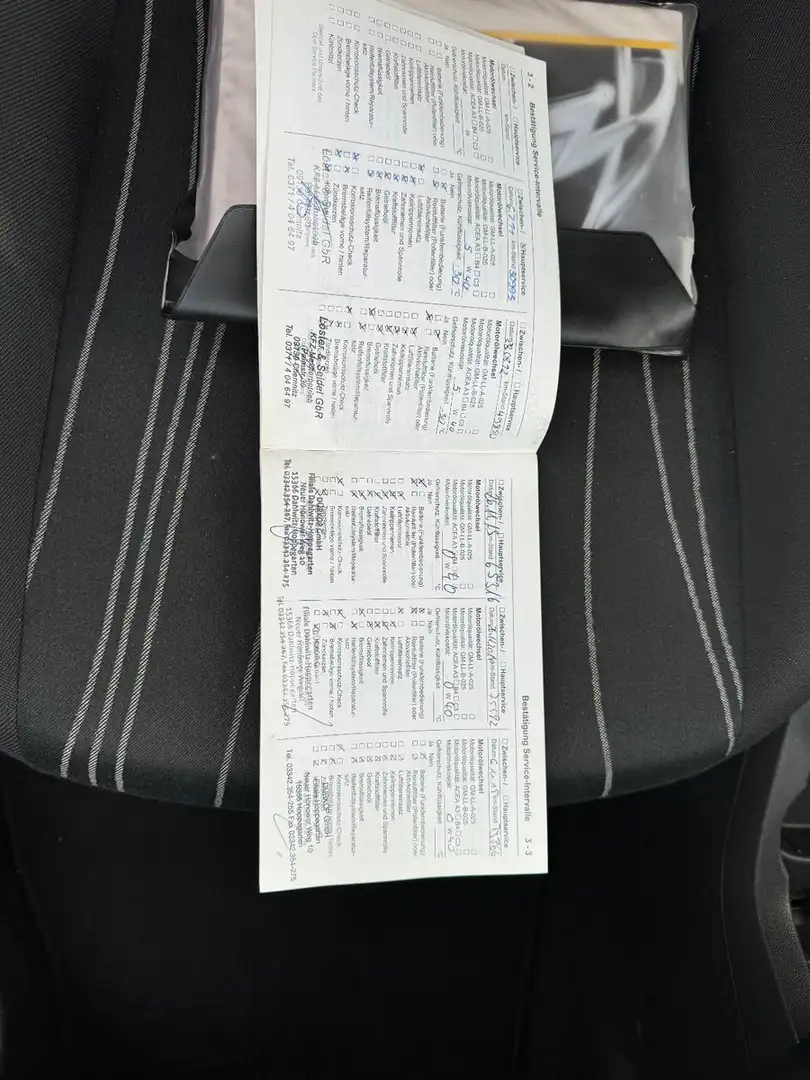 3 - 2 Bestätigung Service-Intervalle
Zwischen- / Hauptservice
Datum km-Stand
Motorölwechsel
Motorölqualität: GM-LL-A-025
Motorölqualität: GM-LL-B-025
Motorölqualität: ACEA A3 B4 C3
Motorölviskosität: W
Gefrierschutz, Kühlflüssigkeit °C
Ja Nein
Batterie (Funkfernbedienung)
Reinluftfilter (Pollenfilter) oder
Aktivkohlefilter
Luftfiltereinsatz
Keilrippenriemen
Zahnriemen und Spannrolle
Kraftstofffilter
Getriebeöl
Bremsflüssigkeit
Reifenfüllsystem/Reparatur-
satz
Korrosionsschutz-Check
Bremsbeläge vorne / hinten
Zündkerzen
Kühlmittel
Stempel und Unterschrift des
Opel Service Partners
Zwischen- / Hauptservice
Datum km-Stand 30993
Motorölwechsel
Motorölqualität: GM-LL-A-025
Motorölqualität: GM-LL-B-025
Motorölqualität: ACEA A3 B4 C3
Motorölviskosität: 5 W 40
Gefrierschutz, Kühlflüssigkeit -30 °C
Ja Nein
Batterie (Funkfernbedienung)
Reinluftfilter (Pollenfilter) oder
Aktivkohlefilter
Luftfiltereinsatz
Keilrippenriemen
Zahnriemen und Spannrolle
Kraftstofffilter
Getriebeöl
Bremsflüssigkeit
Reifenfüllsystem/Reparatur-
satz
Korrosionsschutz-Check
Bremsbeläge vorne / hinten
Zündkerzen
Seidel GbR
Tel. 0371 / 4 04 64 97
Zwischen- / Hauptservice
Datum km-Stand
Motorölwechsel
Motorölqualität: GM-LL-A-025
Motorölqualität: GM-LL-B-025
Motorölqualität: ACEA A3 B4 C3
Motorölviskosität: 5 W 40
Gefrierschutz, Kühlflüssigkeit °C
Ja Nein
Batterie (Funkfernbedienung)
Reinluftfilter (Pollenfilter) oder
Aktivkohlefilter
Luftfiltereinsatz
Keilrippenriemen
Zahnriemen und Spannrolle
Kraftstofffilter
Getriebeöl
Bremsflüssigkeit
Reifenfüllsystem/Reparatur-
satz
Korrosionsschutz-Check
Bremsbeläge vorne / hinten
Zündkerzen
& Seidel GbR
Chemnitz
Tel. 0371 / 4 04 64 97
Bestätigung Service-Intervalle 3 - 3
Zwischen- / Hauptservice
Datum km-Stand
Motorölwechsel
Motorölqualität: GM-LL-A-025
Motorölqualität: GM-LL-B-025
Motorölqualität: ACEA A3 B4 C3
Motorölviskosität: 0 W 40
Gefrierschutz, Kühlflüssigkeit °C
Ja Nein
Batterie (Funkfernbedienung)
Reinluftfilter (Pollenfilter) oder
Aktivkohlefilter
Luftfiltereinsatz
Keilrippenriemen
Zahnriemen und Spannrolle
Kraftstofffilter
Getriebeöl
Bremsflüssigkeit
Reifenfüllsystem/Reparatur-
satz
Korrosionsschutz-Check
Bremsbeläge vorne / hinten
GmbH
Filiale Dahlwitz-Hoppegarten
Neuer Hönower Weg 10
15366 Dahlwitz-Hoppegarten
Tel. 03342.354-267, Fax 03342.354-275
Zwischen- / Hauptservice
Datum km-Stand 75572
Motorölwechsel
Motorölqualität: GM-LL-A-025
Motorölqualität: GM-LL-B-025
Motorölqualität: ACEA A3 B4 C3
Motorölviskosität: 0 W 40
Gefrierschutz, Kühlflüssigkeit °C
Ja Nein
Batterie (Funkfernbedienung)
Reinluftfilter (Pollenfilter) oder
Aktivkohlefilter
Luftfiltereinsatz
Keilrippenriemen
Zahnriemen und Spannrolle
Kraftstofffilter
Getriebeöl
Bremsflüssigkeit
Reifenfüllsystem/Reparatur-
satz
Korrosionsschutz-Check
Bremsbeläge vorne / hinten
Zündkerzen
Filiale Dahlwitz-Hoppegarten
Neuer Hönower Weg
15366 Dahlwitz-Hoppegarten
Zwischen- / Hauptservice
Datum km-Stand
Motorölwechsel
Motorölqualität: GM-LL-A-025
Motorölqualität: GM-LL-B-025
Motorölqualität: ACEA A3 B4 C3
Motorölviskosität: 0 W 40
Gefrierschutz, Kühlflüssigkeit °C
Ja Nein
Batterie (Funkfernbedienung)
Reinluftfilter (Pollenfilter) oder
Aktivkohlefilter
Luftfiltereinsatz
Keilrippenriemen
Zahnriemen und Spannrolle
Kraftstofffilter
Getriebeöl
Bremsflüssigkeit
Reifenfüllsystem/Reparatur-
satz
Korrosionsschutz-Check
GmbH
Neuer Hönower Weg 10
15366 Hoppegarten
Tel. 03342.354-255 Fax 03342.354-275